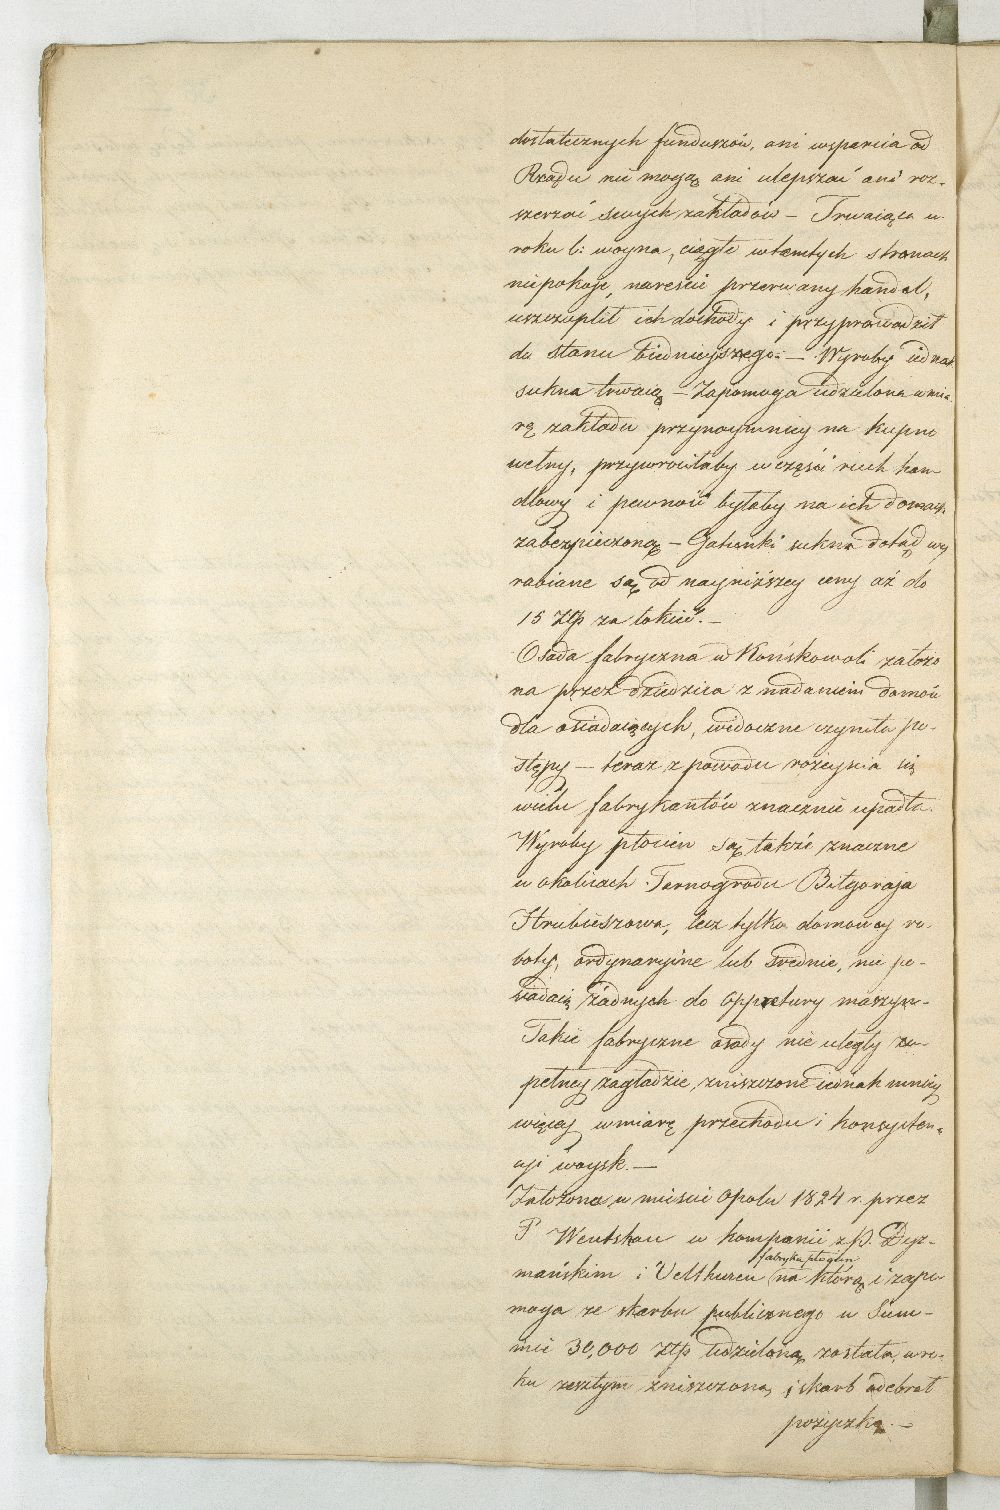 dostatecznych funduszów, ani wsparcia od
Rządu nie mogą ani ulepszać ani roz-
szerzać swych zakładów – Trwaiąca w
roku b: woyna, ciągłe w tamtych stronach
niepokoje, nareście przerwany handel,
uszczuplił ich dochody i przyprowadził
do stanu biednieyszego. – Wyroby iednak
sukna trwaią – Zapomoga udzielona w mia-
rę zakładu przynaymniey na kupno
wełny, przywróciłaby w części ruch han-
dlowy i pewność byłaby na ich domach
zabezpieczoną – Gatunki sukna dotąd wy
rabiane są od nayniższey ceny aż do
15 Złp za łokieć. –
Osada fabryczna w Końskowoli założo
na przez dziedzica z nadaniem domów
dla osiadaiących, widoczne czyniła po-
stępy – teraz z powodu rozeyścia się
wielu fabrykantów znacznie upadła.
Wyroby płócien są także znaczne
w okolicach Tarnogrodu Biłgoraja
Hrubieszowa, lecz tylko domowey ro-
boty, ordynaryine lub średnie, nie po-
siadaią żadnych do appretury maszyn –
Takie fabryczne osady nie uległy zu-
pełney zagładzie, zniszczone iednak mniey
więcey w miarę przechodu i konsysten-
cyi woysk. –
Założona w mieście Opolu 1824 r. przez
P Wentskau w kompanii z P. Dyz-
fabryka płócien
mańskim i Veltkurcu na którą i zapo
moga ze skarbu publicznego w Sum-
mie 30,000 Złp udzieloną została, w ro-
ku zeszłym zniszczona, i skarb odebrał
pożyczkę. –